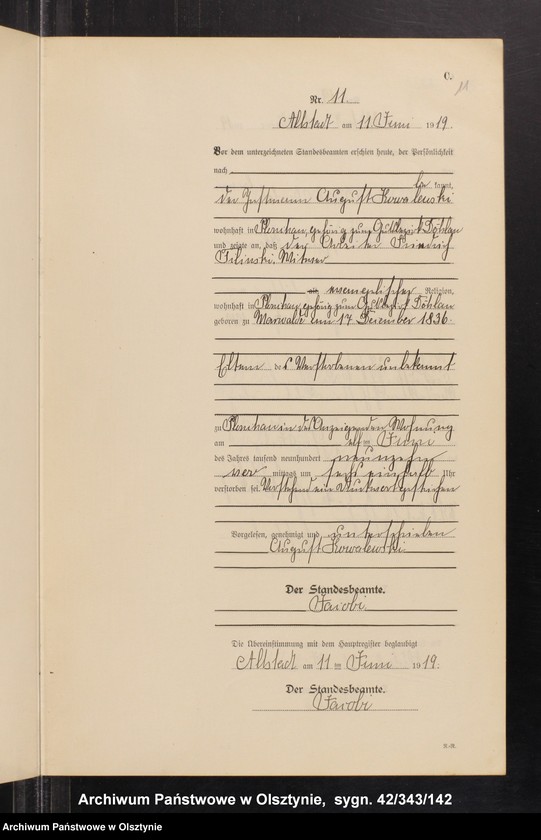 C.
11
Nr. 11
Altstadt am 11 Juni 1919.
Vor dem unterzeichneten Standesbeamten erschien heute, der Persönlichkeit
nach
be kannt,
der Instmann August Kowalewski
wohnhaft in gehörig zum Gutsbezirk Döhlau
und zeigte an, daß der Arbeiter Friedrich
Witwer
evangelischer Religion,
wohnhaft in gehörig zum Gutsbezirk Döhlau
geboren zu Marwalde am 17 Dezember 1836.
Eltern des Verstorbenen unbekannt
zu in des Anzeigenden Wohnung
am elften Juni
des Jahres tausend neunhundert neunzehn
vor mittags um sechs einhalb Uhr
verstorben sei. Vorstehend ein Druckwort gestrichen
Vorgelesen, genehmigt und unterschrieben
August Kowalewski
Der Standesbeamte.
Jacobi
Die Übereinstimmung mit dem Hauptregister beglaubigt
Altstadt am 11 ten Juni 1919.
Der Standesbeamte.
Jacobi
Archiwum Państwowe w Olsztynie, sygn. 42/343/142
Archiwum Państwowe w Olsztynie